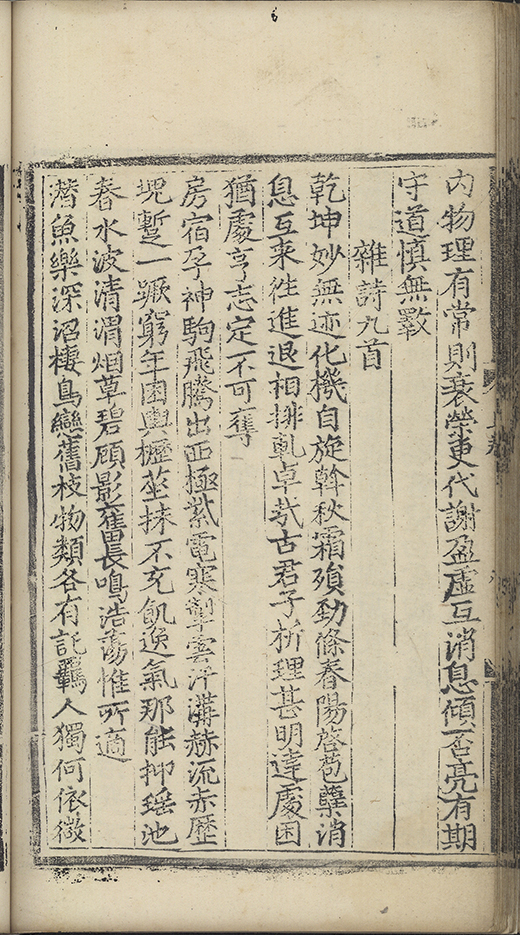 內物理有常則衰榮更代謝盈虛互消息傾否亮有期
守道慎無斁
雜詩九首
乾坤妙無迹化機自旋斡秋霜殞勁條春陽啓苞蘖消
息互來徃進退相排軋卓㦲古君子析理甚明達處困
猶處亨志定不可奪
房宿孕神駒飛騰出西極紫電寒掣雲汗溝赫流赤歷
塊蹔一蹶窮年困輿櫪莝秣不充飢逸氣那能抑瑤池
春水波清渭烟草碧顧影奮長鳴浩蕩惟所適
潛魚樂深沼棲鳥戀舊枝物類各有託羈人獨何依微